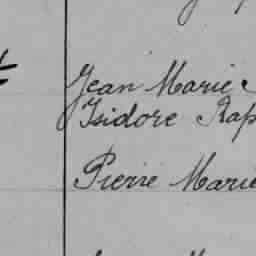 Jean Marie
Isidore Rap
Pierre Marie